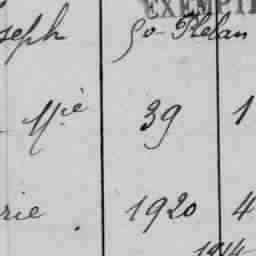 seph go Plélan
EXEMPTÉ
Mie 39 1
rie. 1920 4
1914